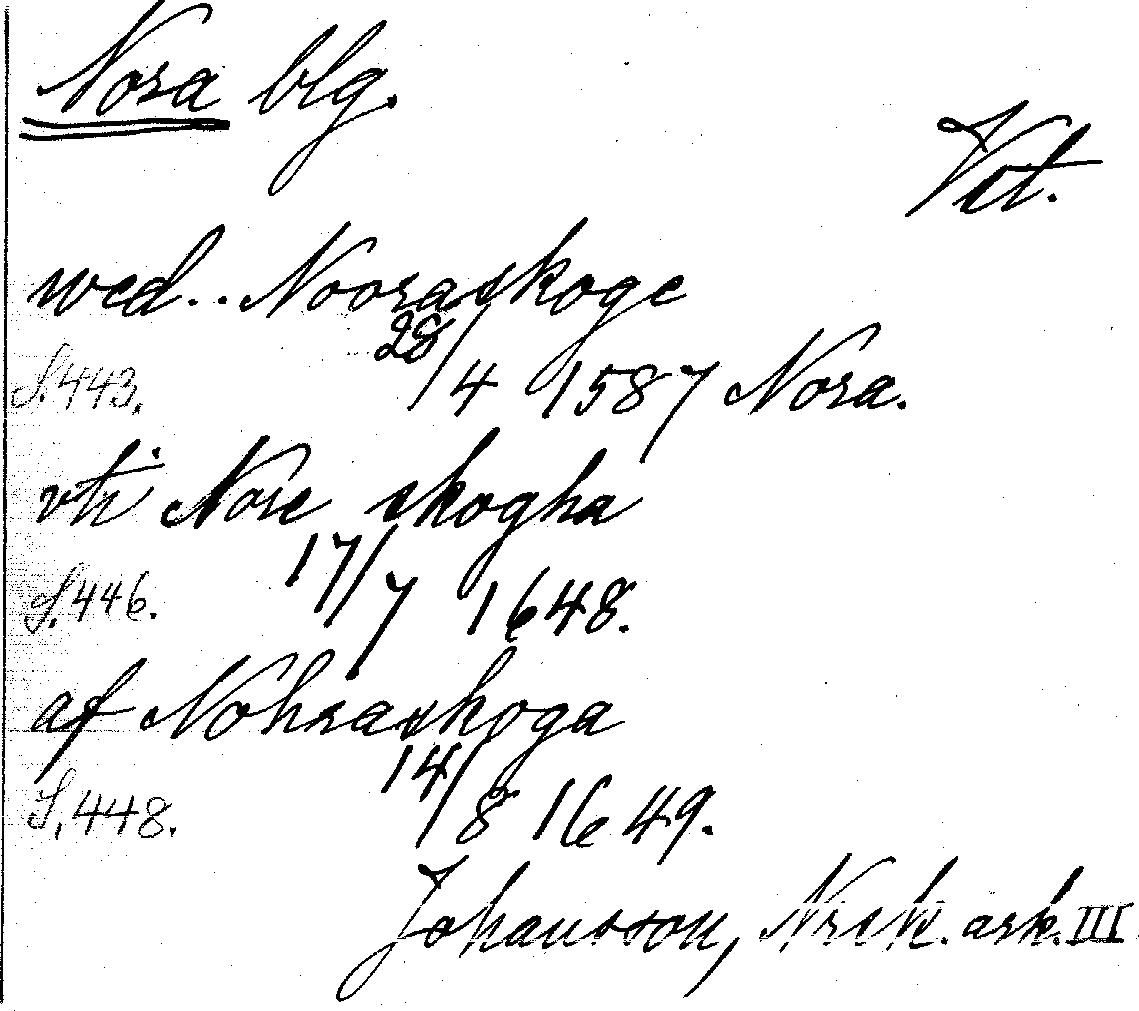 Nora blg.
Vit.
wed.. Nooraskoge
S.443. 28/4 1587 Nora.
vti Nore skogha
S.446. 17/7 1648.
af Nohraskoga
S.448. 14/8 1649.
Johansson, Nrsk. ark. III